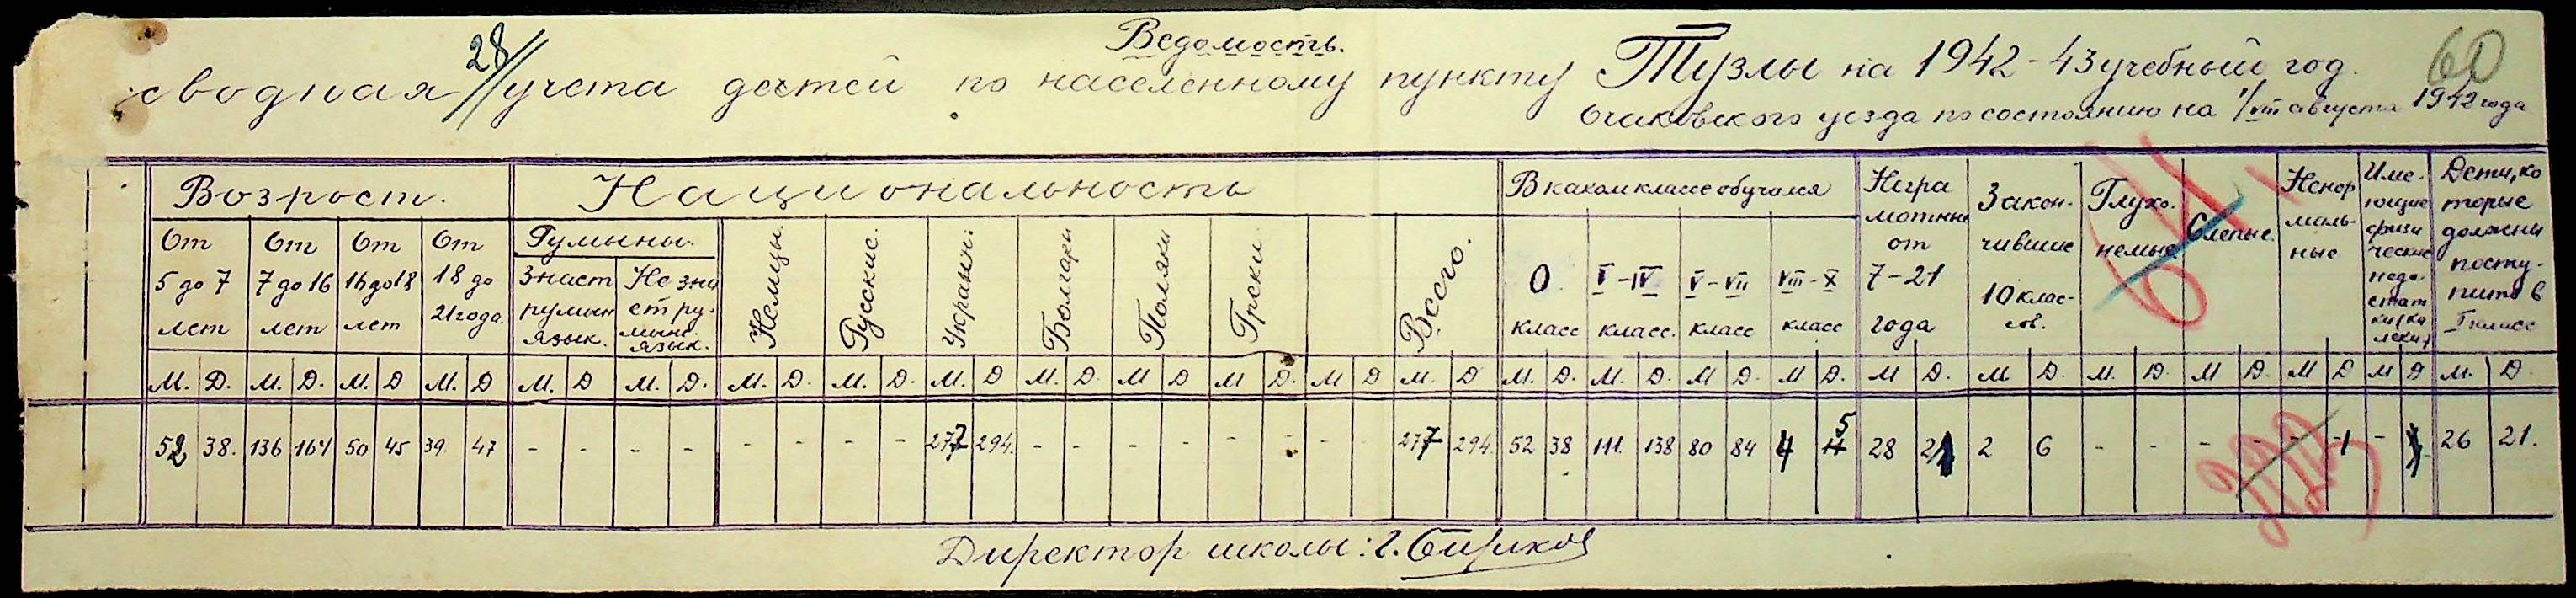 Ведомость.
сводная учета детей по населенному пункту Тузлы на 1942-43 учебный год.
28
60
Очаковского уезда по состоянию на 1/VIII августа 1942 года
Возраст.
Национальность
В каком классе обучался
Неграмотные от 7-21 года
Закончившие 10 классов.
Глухонемые
Слепые.
Ненормальные
Имеющие физические недостатки (калеки)
Дети, которые должны поступить в I класс
От 5 до 7 лет
От 7 до 16 лет
От 16 до 18 лет
От 18 до 21 года.
Румыны.
Знает румын язык.
Не знает румынс. язык.
Немцы.
Русские.
Украин.
Болгары
Поляки
Греки
Всего.
0 класс
I-IV класс.
V-VII класс
VIII-X класс
М. Д. М. Д. М. Д М. Д М. Д М. Д. М. Д. М. Д. М. Д М. Д. М Д М Д. М Д М. Д М. Д. М. Д. М Д. М Д. М Д. М Д. М. Д. М Д. М Д М Д М. Д.
52 38. 136 164 50 45 39. 47 - - - - - - - - 277 294. - - - - - - - - 277 294. 52 38 111. 138 80 84 4 5 28 21 2 6 - - - - - 1 - 26 21.
Директор школы: